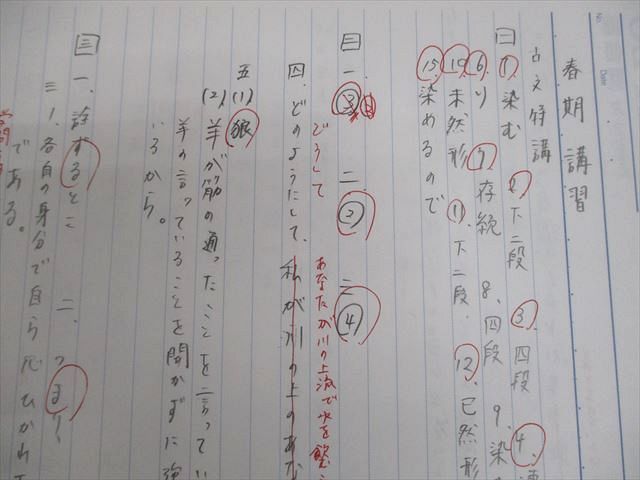 春期講習
古文特講
一 1, 染む 2, 下二段 3, 四段 4,
6, り 7, 存続 8, 四段 9, 染
10 未然形 11, 下二段 12, 已然形
15, 染めるので
二 一, ③ 二 ② 三 ④
どうして あなたが川の上流で水を飲
四, どのようにして, 私が川の上のあな
五 (1) 狼
(2), 羊が筋の通ったことを言ってい
羊の言っていることを聞かずに強
いるから。
三 一, 詮ずるところ 二, つまり
三 1, 各自の身分で自ら
である。